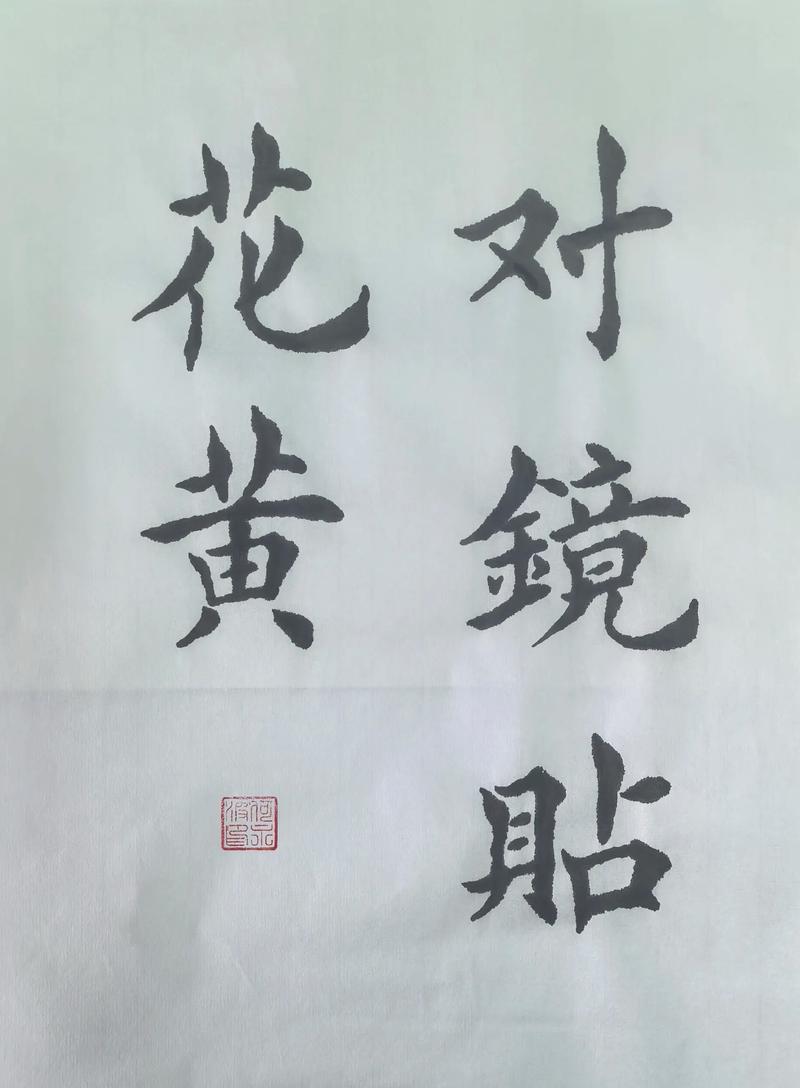 对鏡貼
花黄